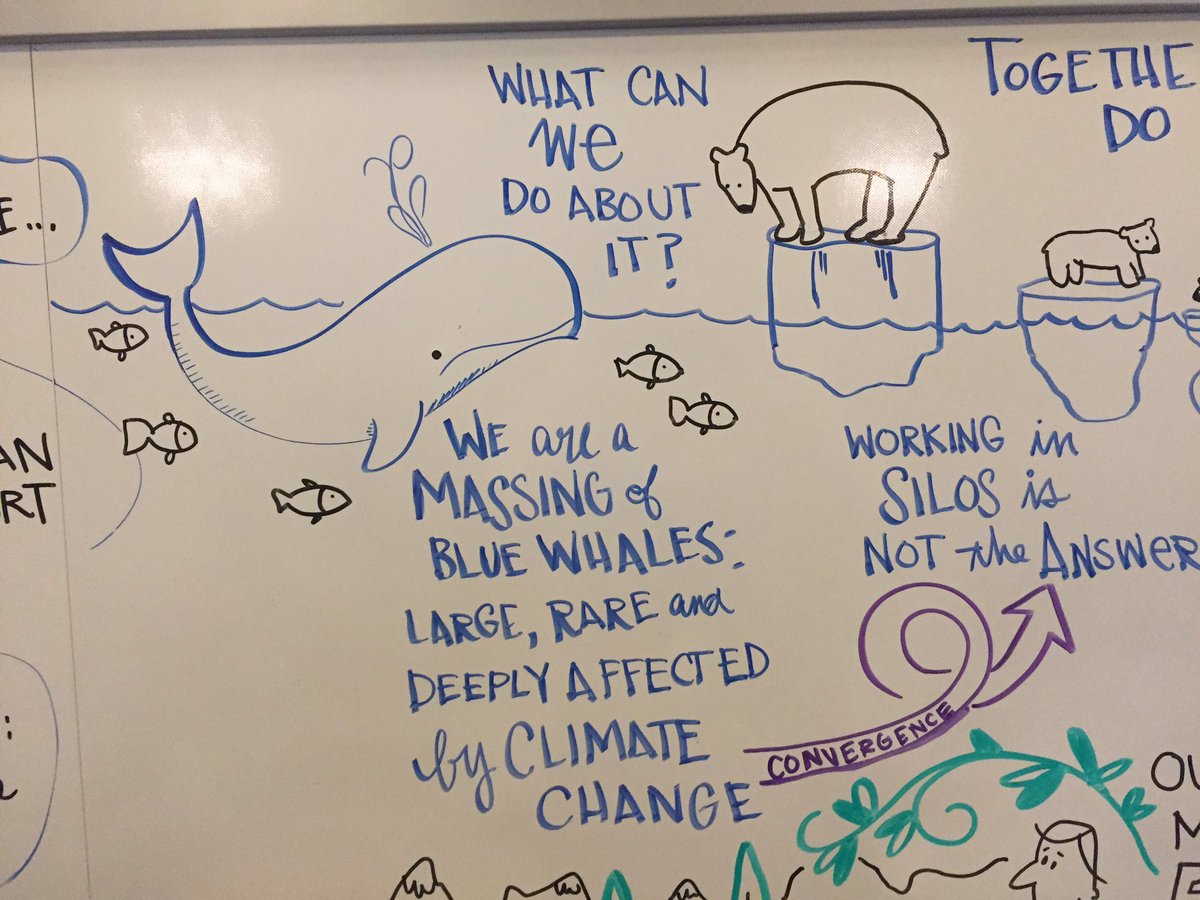 WHAT CAN
We
DO ABOUT
IT?
TOGETHE
DO
E...
AN
RT
WE are a
MASSING of
BLUE WHALES:
LARGE, RARE and
DEEPLY AFFECTED
by CLIMATE
CHANGE
WORKING in
SILOS is
NOT the ANSWER
CONVERGENCE
OU
M